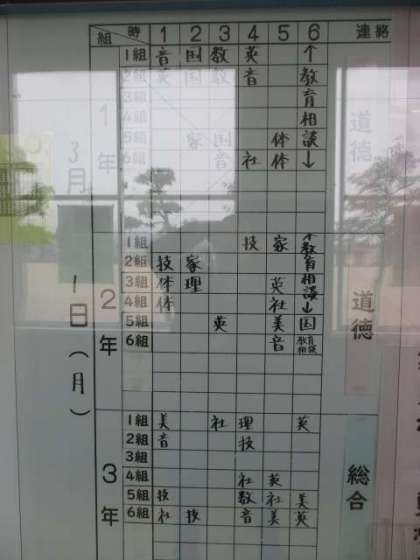 組 時 1 2 3 4 5 6 連絡
3月 1日(月)
1年 道徳
1組 音 国 数 英 ↑
2組 英 国 数 音 教
3組 育
4組 相
5組 家 国 体 談
6組 音 社 体 ↓
2年 道徳
1組 技 家 ↑教
2組 技 家 育
3組 体 理 英 相談
4組 体 社 ↓
5組 英 美 国
6組 音 教育相談
3年 総合
1組 美 社 理 英
2組 音 技
3組
4組 社 英
5組 技 数 社 美
6組 社 技 音 美 英